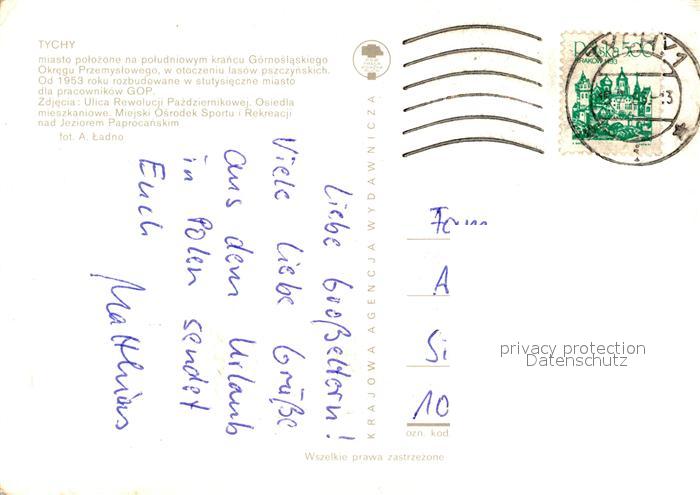 TYCHY
miasto położone na południowym krańcu Górnośląskiego
Okręgu Przemysłowego, w otoczeniu lasów pszczyńskich.
Od 1953 roku rozbudowane w stutysięczne miasto
dla pracowników GOP.
Zdjęcia: Ulica Rewolucji Październikowej. Osiedla
mieszkaniowe. Miejski Ośrodek Sportu i Rekreacji
nad Jeziorem Paprocańskim
fot. A. Ładno
Liebe Großeltern!
Viele liebe Grüße
aus dem Urlaub
in Polen sendet
Euch
Matthias
KRAJOWA AGENCJA WYDAWNICZA
Polska 500
TYCHY 1
A
Si
10
ozn. kod.
privacy protection
Datenschutz
Wszelkie prawa zastrzeżone